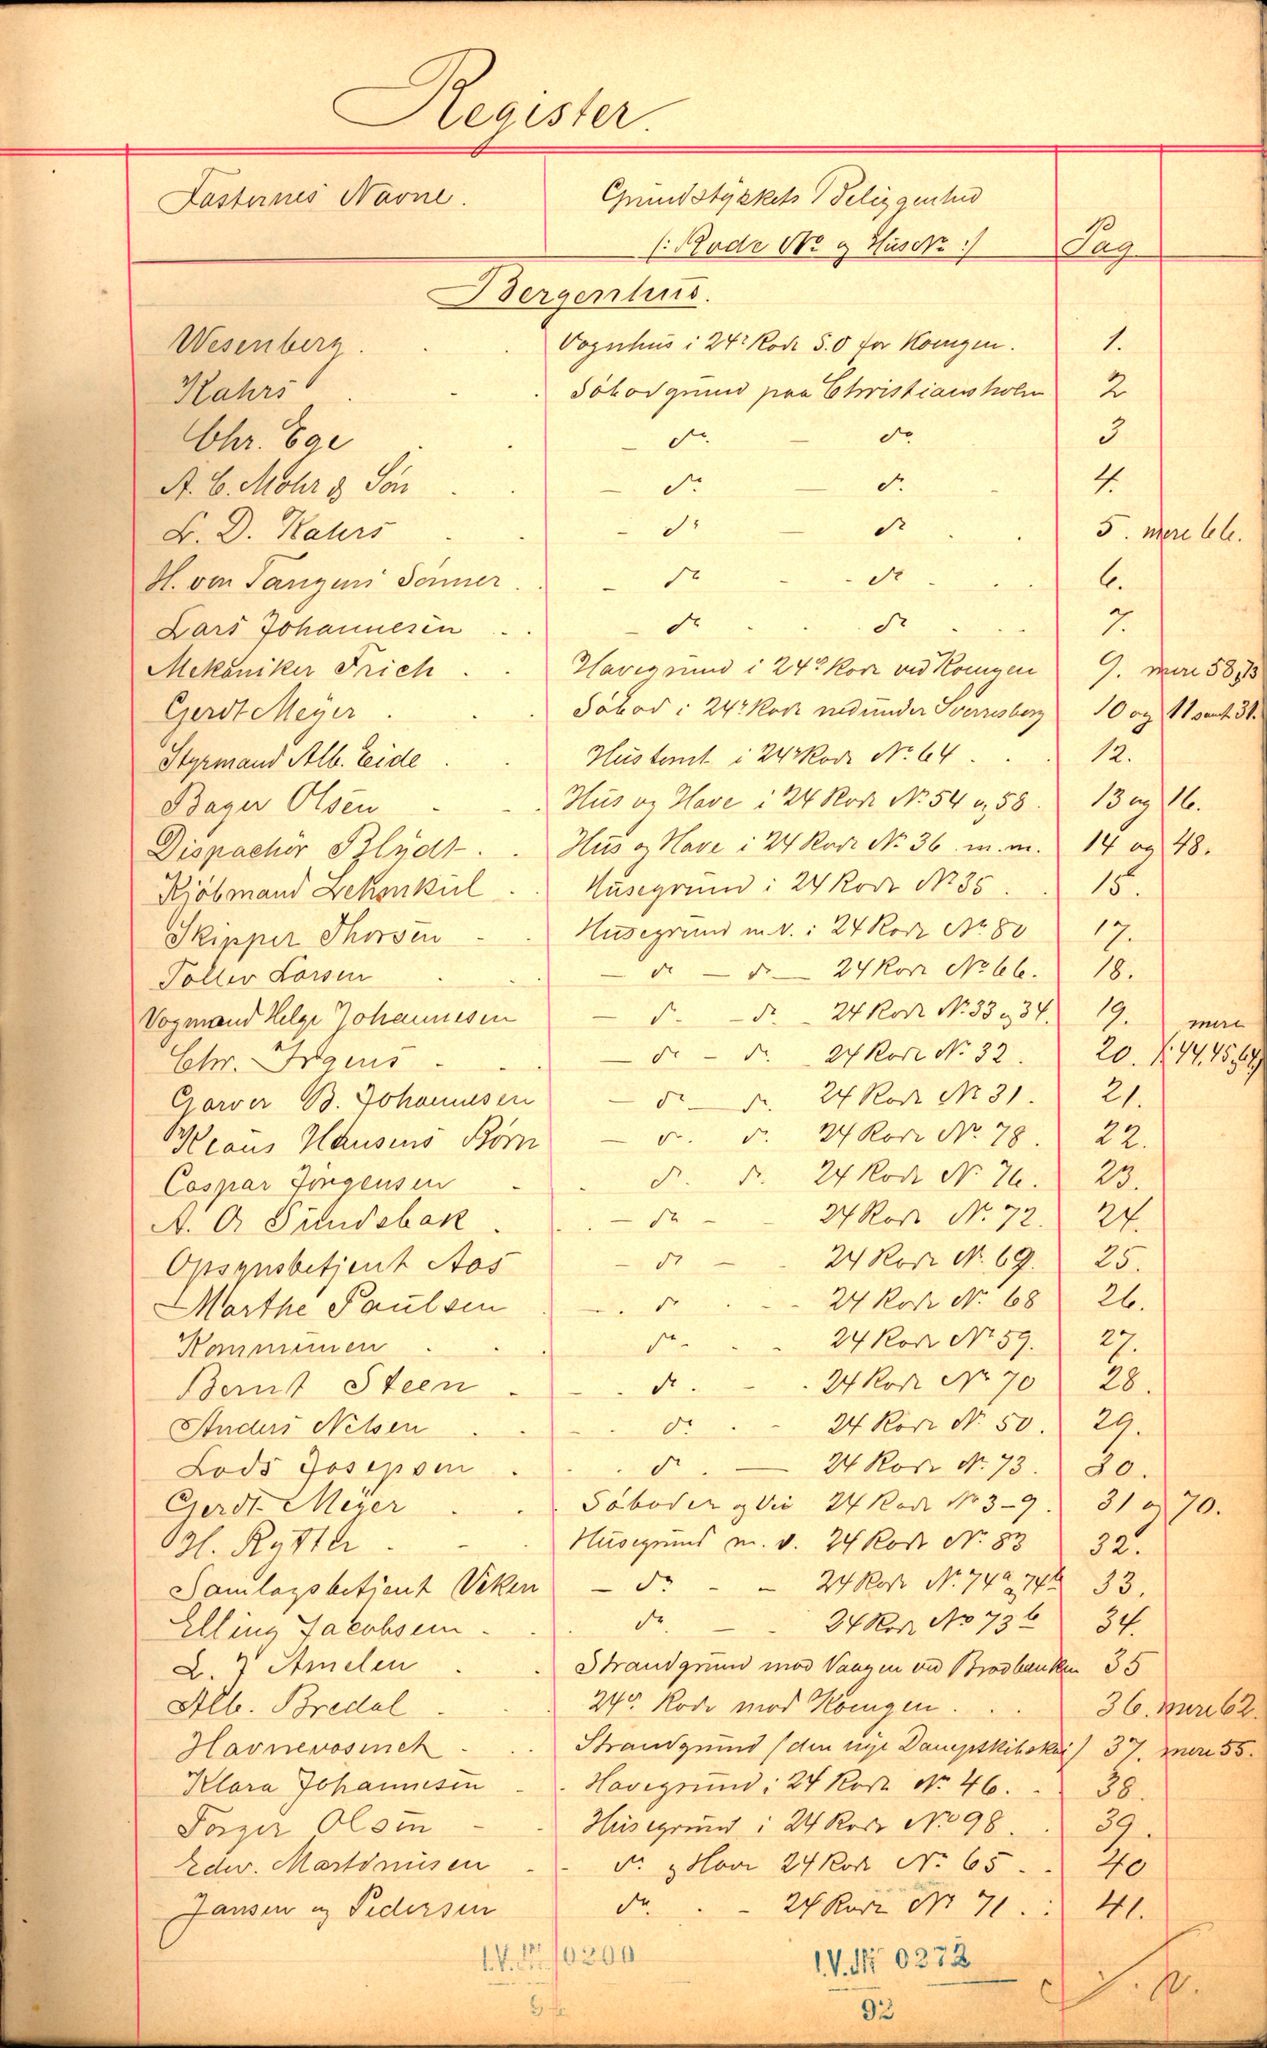 Register.
Fæsternes Navne. Grundstykkets Beliggenhed
(: Rode No og HusNo :) Pag
Bergenhus.
Wesenberg. Vognhus i 24r Rode S.O for Kongen. 1.
Kahrs Söbodgrund paa Christiansholm 2
Chr. Ege do. do. 3
A. C. Mohr & Sön do. do. 4.
F. D. Kahrs do do 5. mere 66.
H. von Tangens Sönner do do 6.
Lars Johannesen do do 7.
Mekaniker Frich Havegrund i 24de Rode ved Kongen 9. mere 58, 73
Gerdt Meyer Söbod i 24r Rode nedunder Sverresberg 10 og 11 samt 31.
Styrmand Alb. Eide Hustomt i 24r Rode No 64 12.
Bager Olsen Hus og Have i 24 Rode No 54 og 58. 13 og 16.
Dispachör Blydt Hus og Have i 24 Rode No 36 m.m. 14 og 48.
Kjöbmand Lehmkul Husegrund i 24 Rode No 35 15.
Skipper Thorsen Husegrund m.v. i 24 Rode No 80 17.
Toller Larsen do do 24 Rode No 66. 18.
Vogmand Helge Johannesen do. do. 24 Rode No 33 og 34. 19.
Chr. Irgens do do. 24 Rode No 32. 20. (: mere 44, 45 og 64)
Garver B. Johannesen do do. 24 Rode No 31. 21.
Klaus Hansens Börn do. do. 24 Rode No 78. 22.
Caspar Jörgensen do. do. 24 Rode No 76. 23.
A. O Sundsbak do 24 Rode No. 72. 24.
Opsynsbetjent Aas do 24 Rode No 69. 25.
Marthe Paulsen do 24 Rode No 68 26.
Kommunen do 24 Rode No 59. 27.
Bernt Steen do. 24 Rode No 70 28.
Anders Nilsen do. 24 Rode No 50. 29.
Lods Josepsen do. 24 Rode No. 73. 30.
Gerdt Meyer Söboder 24 Rode No 3-9. 31 og 70.
H. Rytter Husegrund m.v. 24 Rode No 83 32.
Samlagsbetjent Viken do 24 Rode No. 74a og 74b 33.
Elling Jacobsen do. 24 Rode No 73b 34.
L. J Amelen Strandgrund mod Vaagen ved Bradbænken 35
Alb. Bredal 24de Rode mod Kongen. 36. mere 62.
Havnevæsenet Strandgrund (den nye Dampskibskai) 37. mere 55.
Klara Johannesen Havegrund i 24 Rode No 46. 38.
Torger Olsen Husegrund i 24 Rode No 98. 39.
Edw. Martinusen do. og Have 24 Rode No 65. 40
Jansen og Pedersen do. 24 Rode No 71. 41.
I.V.Nr. 0200 I.V.Nr 0272
92